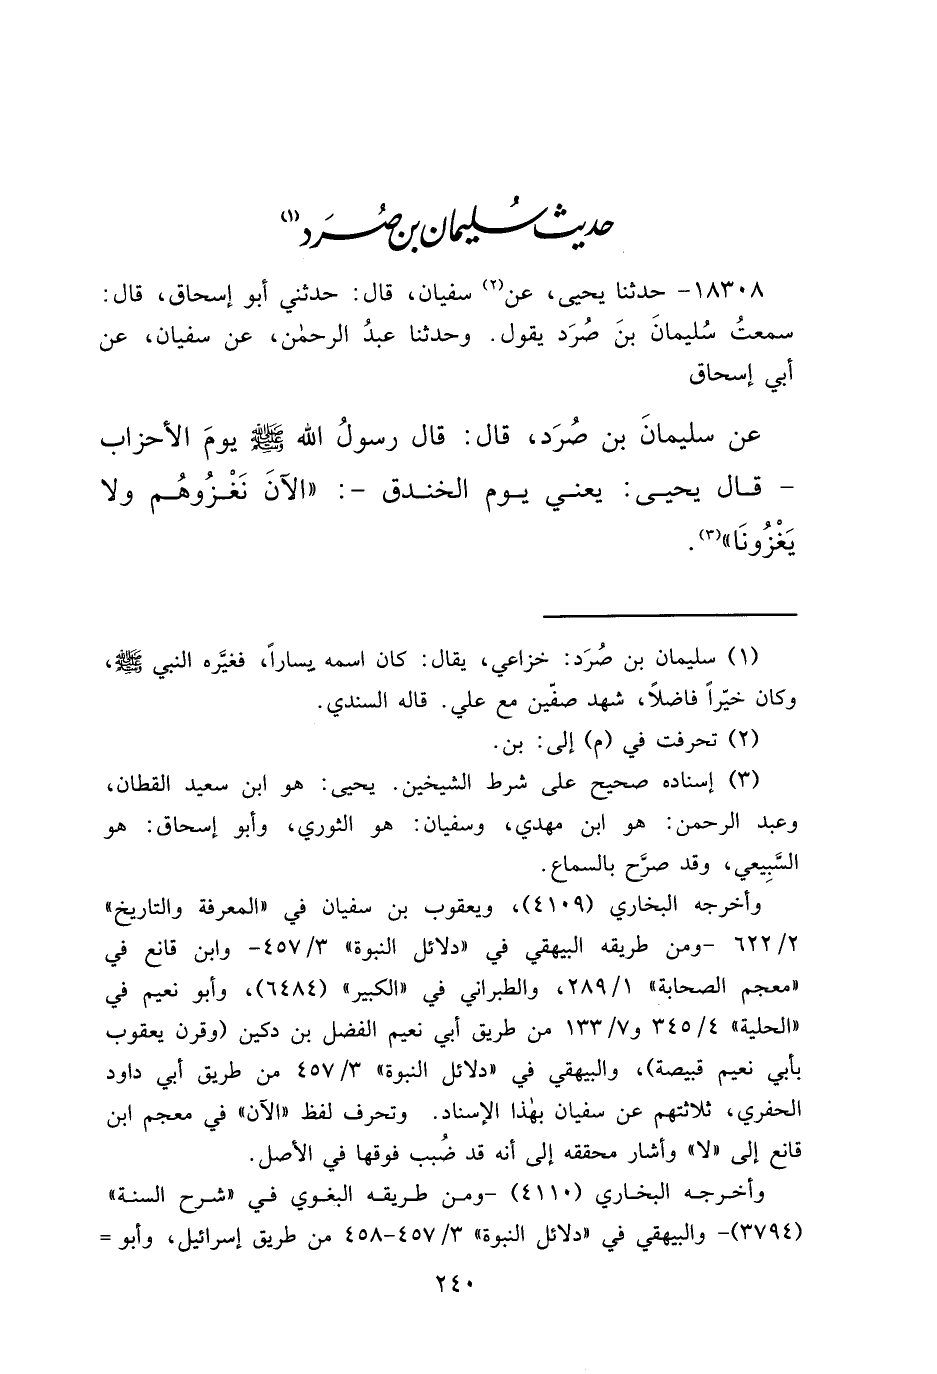 حديث سُليمان بن صُرَد(١)
١٨٣٠٨- حدثنا يحيى، عن(٢) سفيان، قال: حدثني أبو إسحاق، قال:
سمعتُ سُليمانَ بنَ صُرَد يقول. وحدثنا عبدُ الرحمٰن، عن سفيان، عن
أبي إسحاق
عن سليمانَ بن صُرَد، قال: قال رسولُ الله ﷺ يومَ الأحزاب
- قال يحيى: يعني يوم الخندق -: «الآنَ نَغْزُوهُم ولا
يَغْزُونَا»(٣).
(١) سليمان بن صُرَد: خزاعي، يقال: كان اسمه يساراً، فغيَّره النبي ﷺ،
وكان خيّراً فاضلاً، شهد صفّين مع علي. قاله السندي.
(٢) تحرفت في (م) إلى: بن.
(٣) إسناده صحيح على شرط الشيخين. يحيى: هو ابن سعيد القطان،
وعبد الرحمن: هو ابن مهدي، وسفيان: هو الثوري، وأبو إسحاق: هو
السَّبِيعي، وقد صرَّح بالسماع.
وأخرجه البخاري (٤١٠٩)، ويعقوب بن سفيان في «المعرفة والتاريخ»
٦٢٢/٢ -ومن طريقه البيهقي في «دلائل النبوة» ٤٥٧/٣- وابن قانع في
«معجم الصحابة» ٢٨٩/١، والطبراني في «الكبير» (٦٤٨٤)، وأبو نعيم في
«الحلية» ٣٤٥/٤ و١٣٣/٧ من طريق أبي نعيم الفضل بن دكين (وقرن يعقوب
بأبي نعيم قبيصة)، والبيهقي في «دلائل النبوة» ٤٥٧/٣ من طريق أبي داود
الحفري، ثلاثتهم عن سفيان بهٰذا الإسناد. وتحرف لفظ «الآن» في معجم ابن
قانع إلى «لا» وأشار محققه إلى أنه قد ضُبب فوقها في الأصل.
وأخرجه البخاري (٤١١٠) -ومن طريقه البغوي في «شرح السنة»
(٣٧٩٤)- والبيهقي في «دلائل النبوة» ٤٥٧/٣-٤٥٨ من طريق إسرائيل، وأبو =
٢٤٠